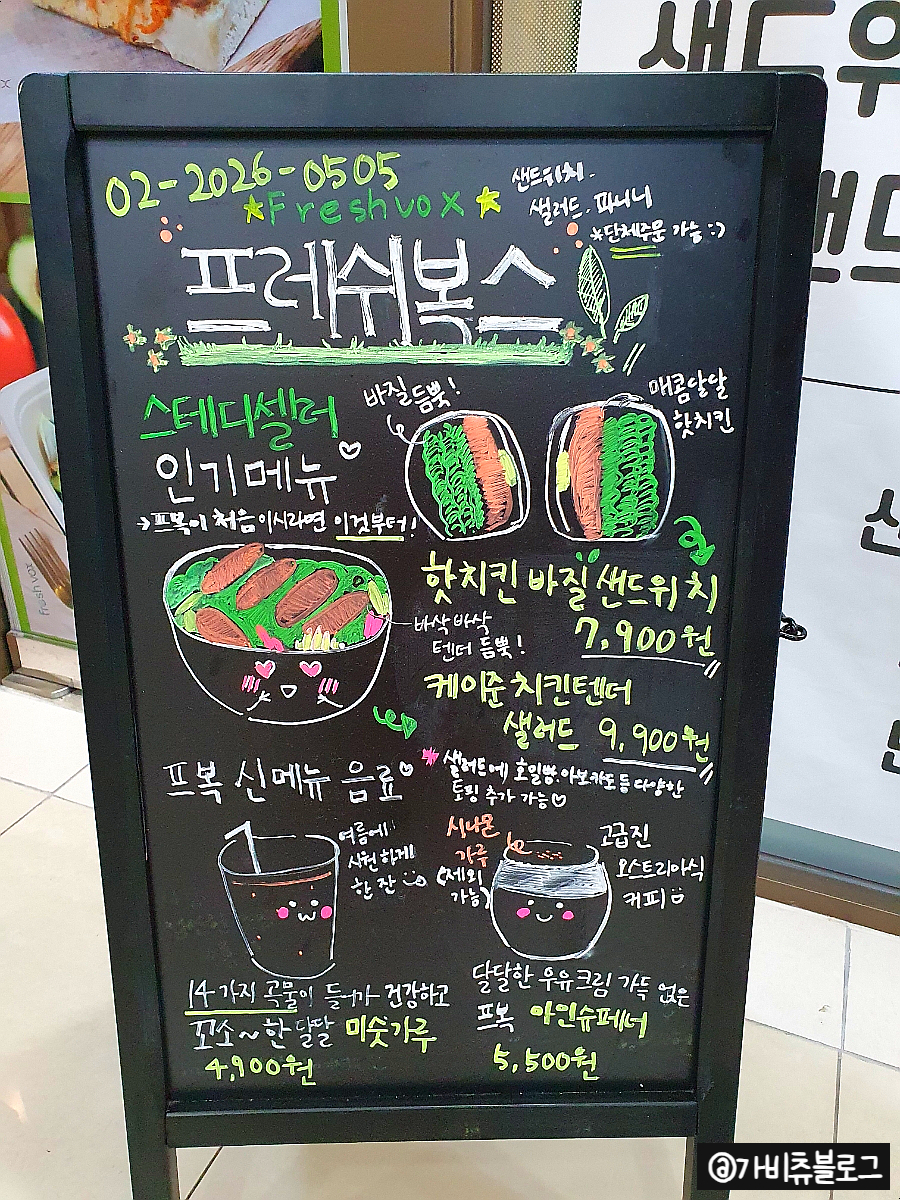 02-2026-0505
Freshvox
샌드위치.
샐러드. 파니니
*단체주문 가능:)
프레쉬복스
스테디셀러
인기메뉴
→프복이 처음이시라면 이것부터!
바질듬뿍!
매콤달달
핫치킨
핫치킨 바질 샌드위치
7,900원
바삭바삭
텐더 듬뿍!
케이준치킨텐더
샐러드 9,900원
*샐러드에 호밀빵.아보카도등 다양한
토핑 추가 가능♡
프복 신메뉴 음료♡
여름에
시원하게
한 잔
시나몬
가루
(제외
가능)
고급진
오스트리아식
커피
14가지 곡물이 들어가 건강하고
꼬소~한 달달 미숫가루
4,900원
달달한 우유크림 가득 얹은
프복 아인슈페너
5,500원
샌드위
freshvox
@가비츄블로그